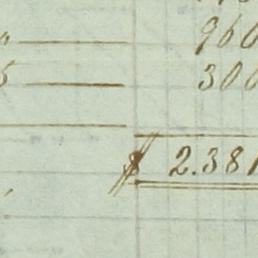 " 960
5 300
$ 2.381